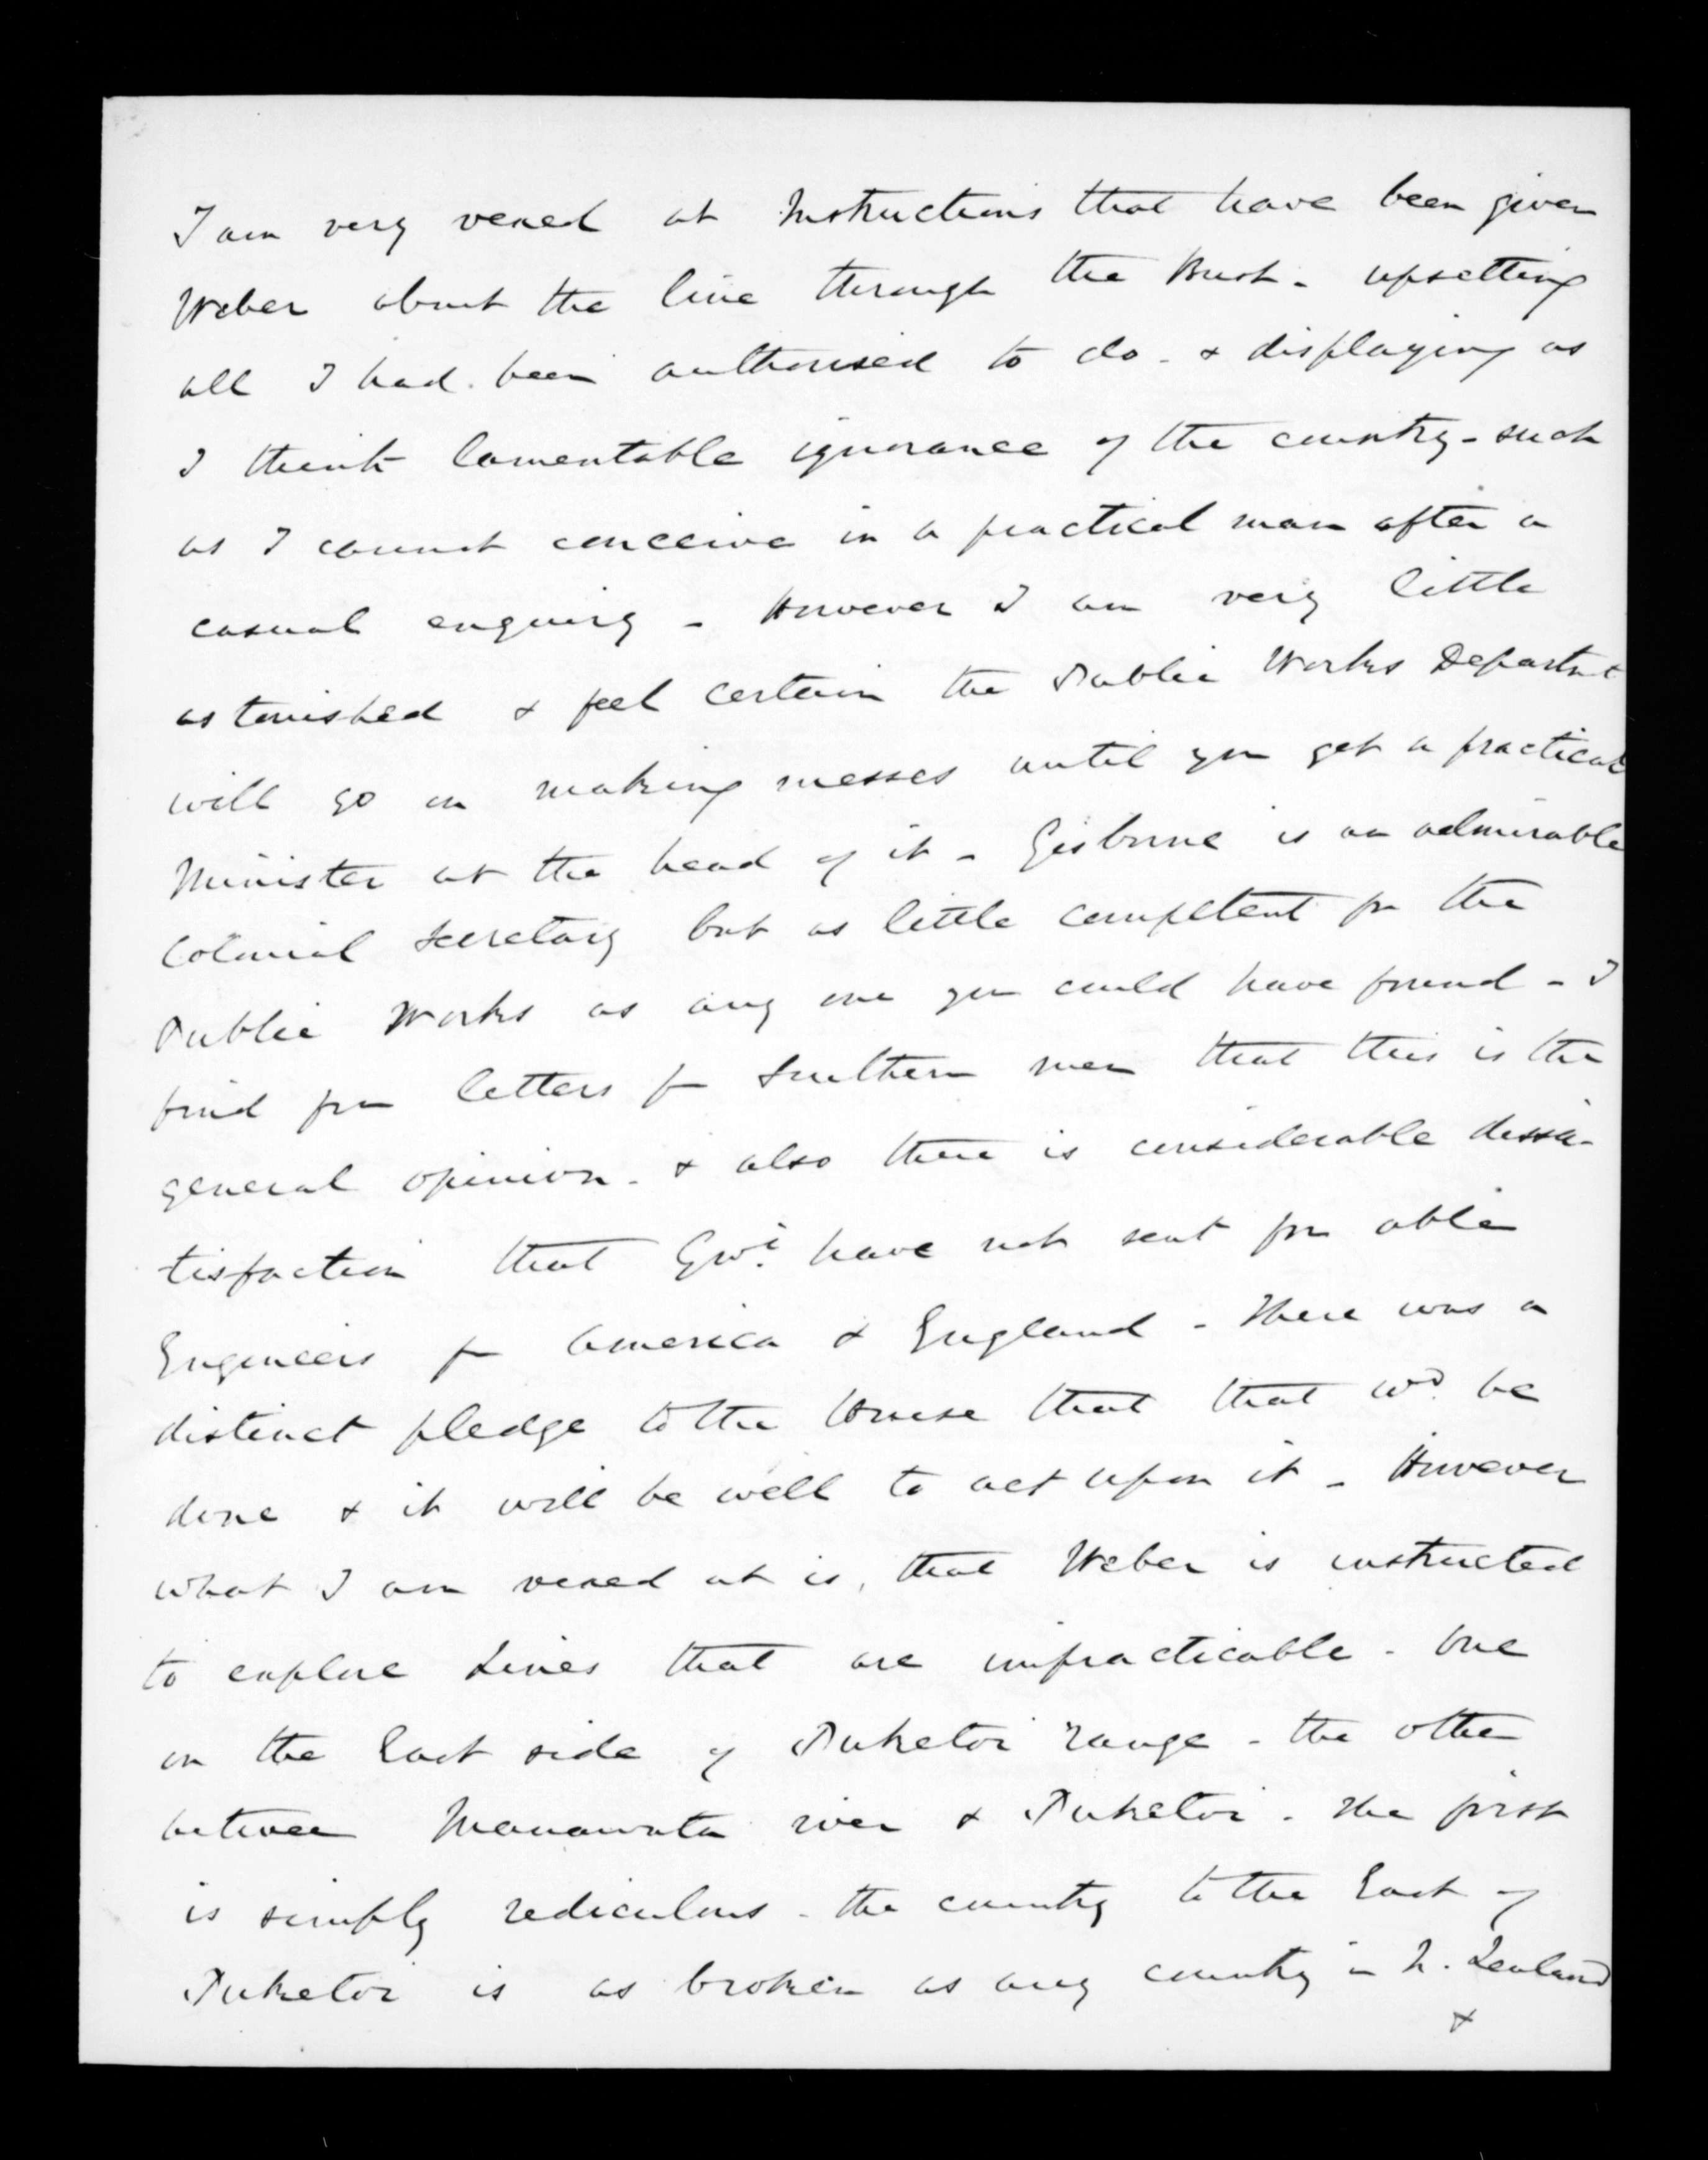 I am very vexed at Instructions that have been given
Weber about the line through the Bush - upsetting
all I had been authorised to do - & displaying as
I think lamentable ignorance of the country - such
as I cannot conceive in a practical man after a
casual enquiry - However I am very little
astonished & feel certain the Public Works Departmt
will go on making messes until you get a practical
Minister at the head of it - Gisborne is an admirable
Colonial Secretary but as little competent for the
Public Works as any one you could have found - I
find from letters fm Southern men that this is the
general opinion - & also there is considerable dissa-
tisfaction that Govt. have not sent for able
Engineers fm America & England - There was a
distinct pledge to the House that that wd. be
done & it will be well to act upon it - However
what I am vexed at is, that Weber is instructed
to explore Lines that are impracticable - One
on the East side of Puketoi range - the other
between Manawatu river & Puketoi - The first
is simply rediculous - the country to the East of
Puketoi is as broken as any country in N. Zealand
&